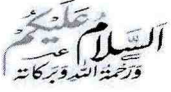 السَّلَامُ عَلَيْكُمْ
وَرَحْمَةُ اللّٰهِ وَبَرَكَاتُهُ